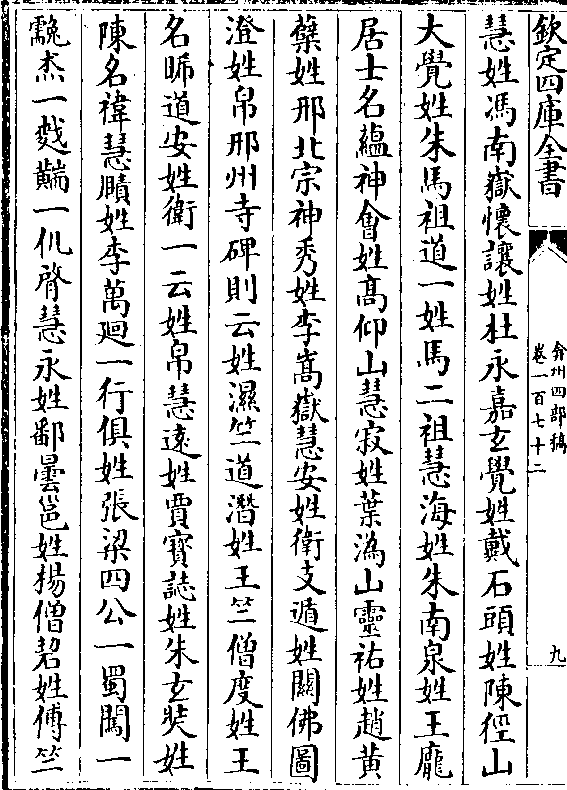 欽定四庫全書
弇州四部稿
卷一百七十二
九
慧姓馮南嶽懷讓姓杜永嘉玄覺姓戴石頭姓陳徑山
大覺姓朱馬祖道一姓馬二祖慧海姓朱南泉姓王龐
居士名蘊神㑹姓髙仰山慧寂姓葉溈山靈祐姓趙黃
蘗姓那北宗神秀姓李嵩嶽慧安姓衛支遁姓關佛圖
澄姓帛邢州寺碑則云姓濕竺道潛姓王竺僧度姓王
名晞道安姓衛一云姓帛慧逺姓賈寳誌姓朱玄奘姓
陳名褘慧賾姓李萬廻一行俱姓張梁四公一蜀闖一
杰一䵣一仉慧永姓鄱曇邕姓揚僧䂮姓傅竺